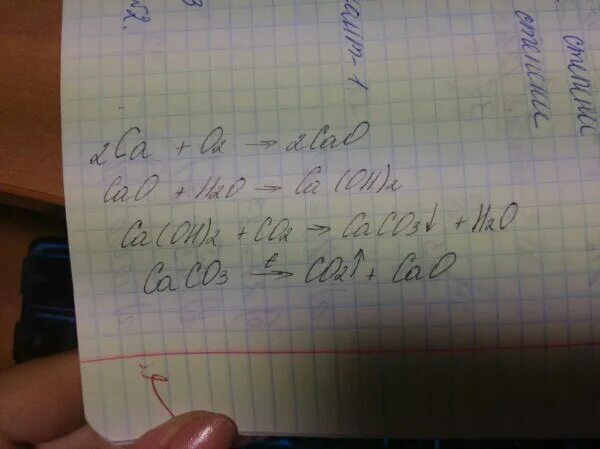 2Ca + O2 → 2CaO
CaO + H2O → Ca(OH)2
Ca(OH)2 + CO2 → CaCO3↓ + H2O
CaCO3 t→ CO2↑ + CaO
степени